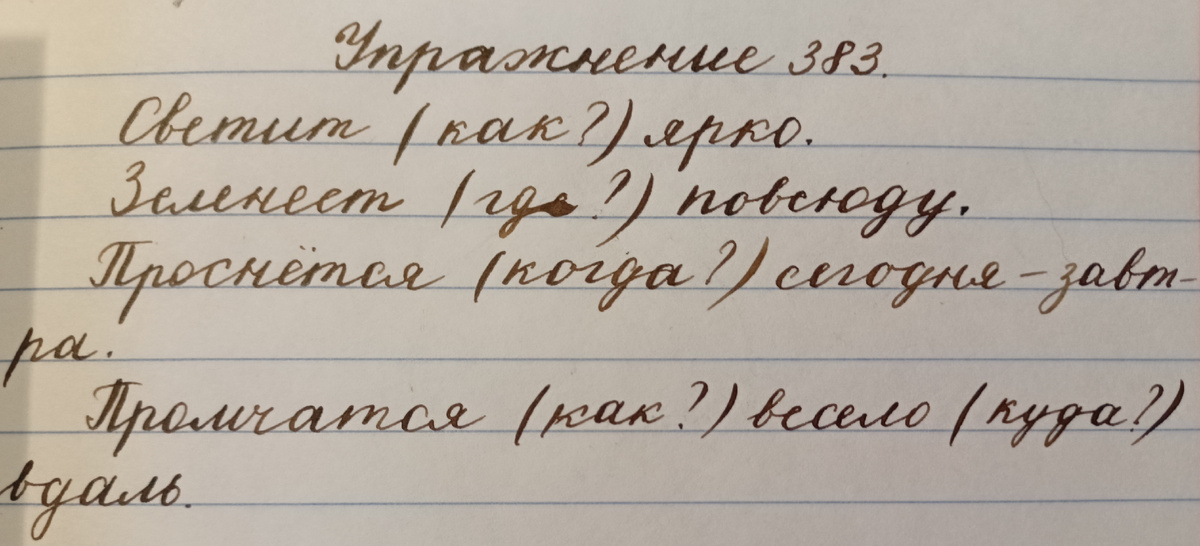 Упражнение 383.
Светит (как?) ярко.
Зеленеет (где?) повсюду.
Проснётся (когда?) сегодня - завт-
ра.
Промчатся (как?) весело (куда?)
вдаль.